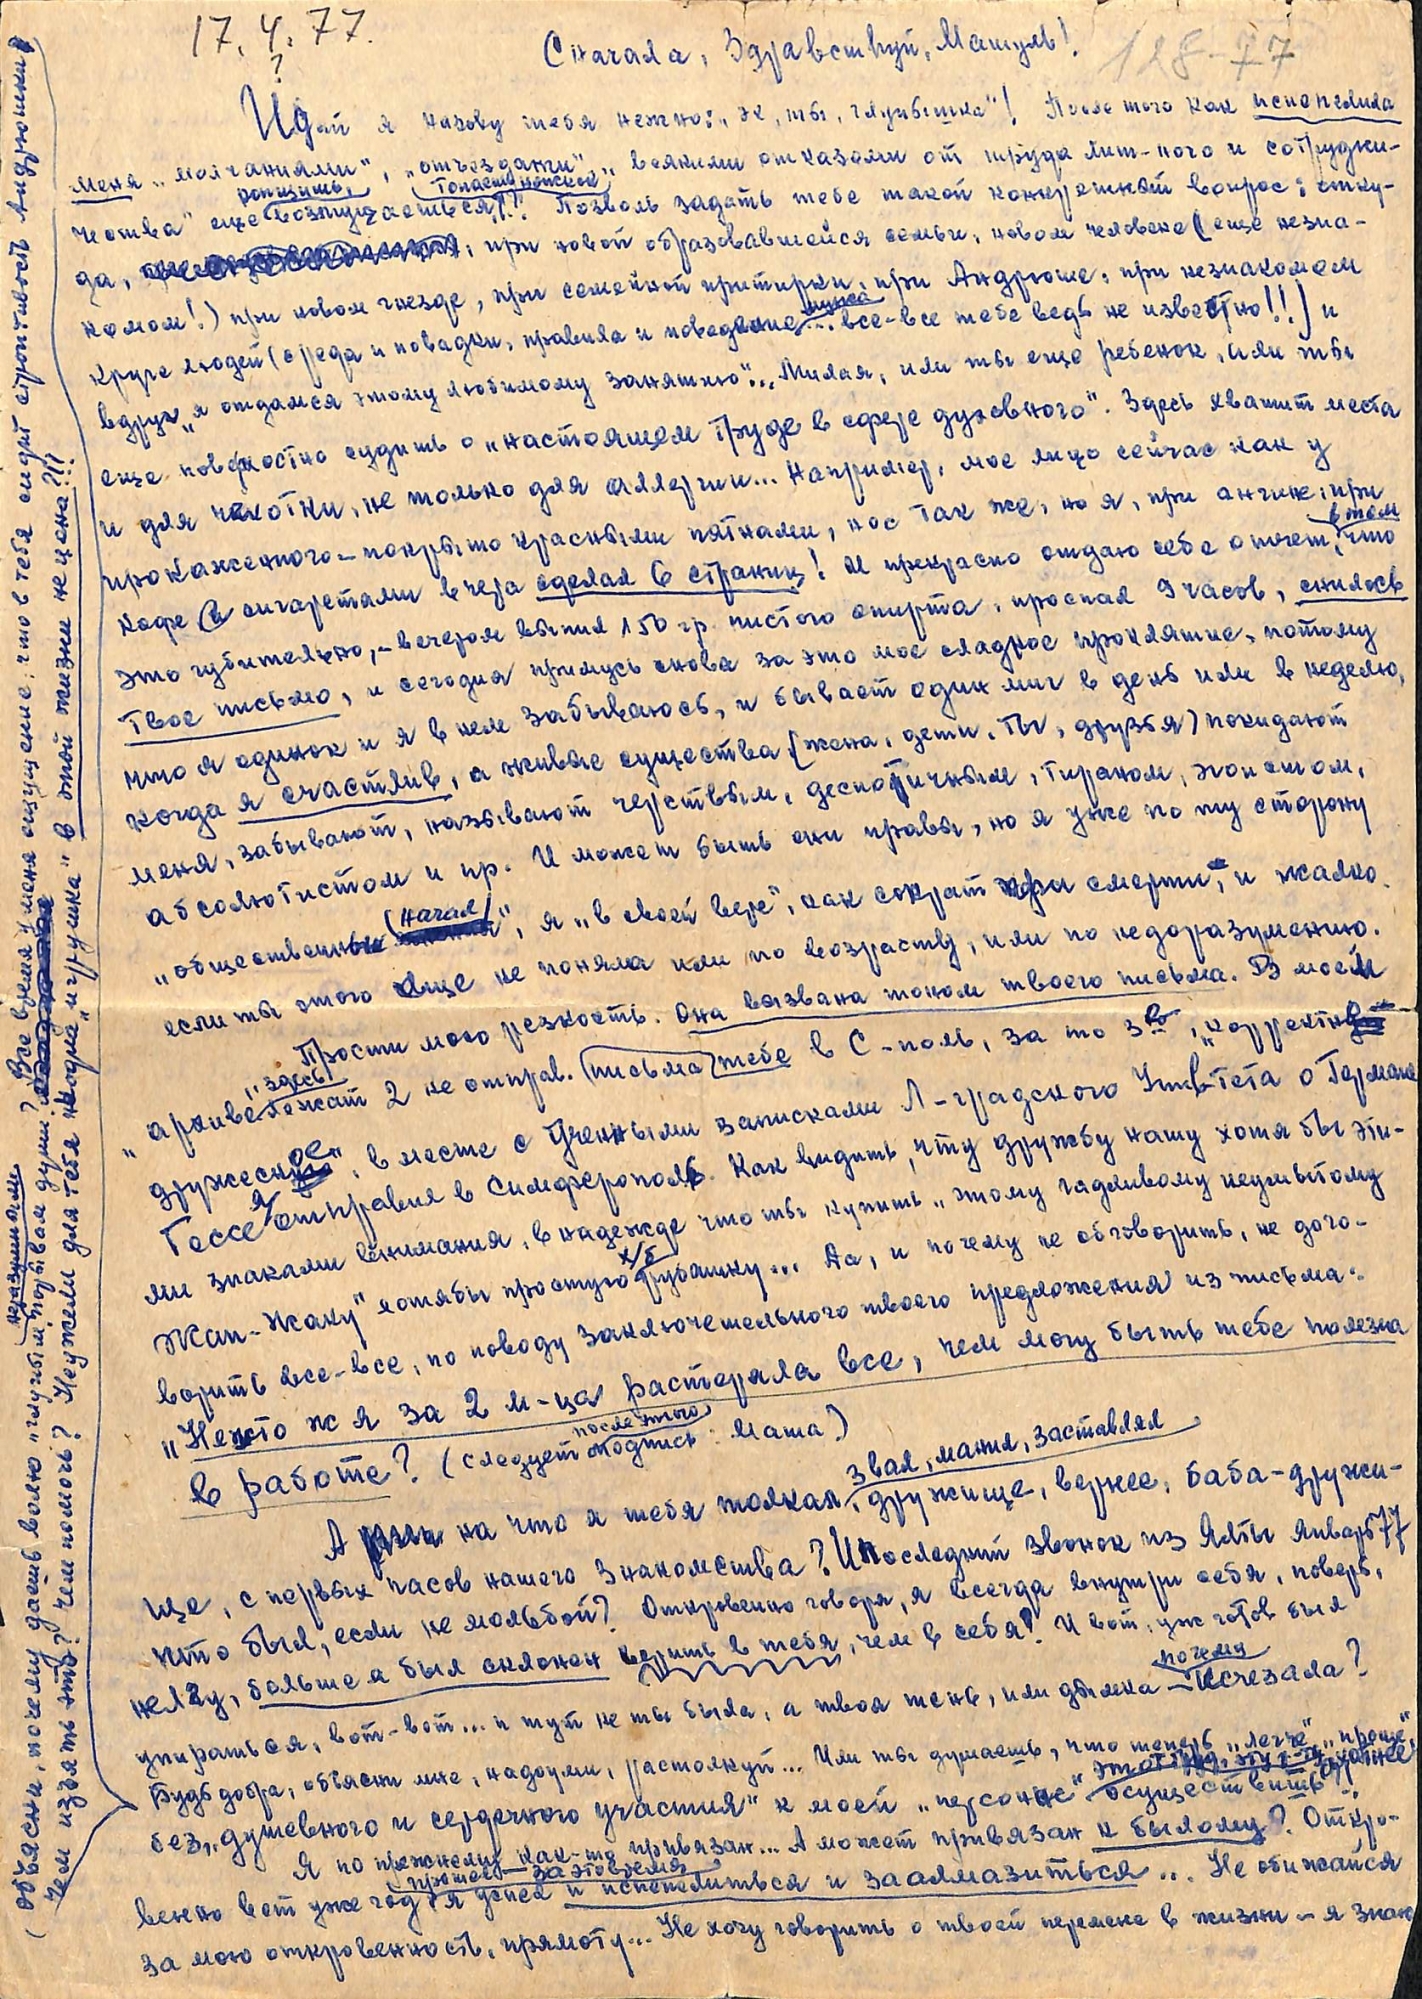 17.4.77.
128-77
Сначала, Здравствуй, Машуль!
?
И дай я назову тебя нежно: „эх, ты, глупышка"! После того как испепелила
меня „молчаниями", „отъездами", всякими отказами от труда лит-ного и сотрудни-
чества" еще возмущаешься!?! Позволь задать тебе такой конкретный вопрос: отку-
да, при новой образовавшейся семьи, новом человеке (еще незна-
комом!) при новом гнезде, при семейной притирки, при Андрюше, при незнакомом
круге людей (среда и повадки, правила и поведение мужа... все-все тебе ведь не известно!!) и
вдруг „я отдамся этому любимому занятию"... Милая, или ты еще ребенок, или ты
еще поверхностно судишь о „настоящем труде в сфере духовного". Здесь хватит места
и для чахотки, не только для аллергии... Например, мое лицо сейчас как у
прокаженного – покрыто красными пятнами, нос так же, но я, при ангине, при
кофе и сигаретами вчера сделал 6 страниц! И прекрасно отдаю себе отчет, в том что
это губительно, – вечером выпил 150 гр. чистого спирта, проспал 9 часов, снилось
твое письмо, и сегодня примусь снова за это мое сладкое проклятие, потому
что я одинок и я в нем забываюсь, и бывает один миг в день или в неделю,
когда я счастлив, а живые существа (жена, дети, ты, друзья) покидают
меня, забывают, называют черствым, деспотичным, тираном, эгоистом,
абсолютистом и пр. И может быть они правы, но я уже по ту сторону
„общественных (начал)", я „в своей вере", как сократ при смерти, и жалко
если ты этого еще не поняла или по возрасту, или по недоразумению.
Прости мою резкость. Она вызвана тоном твоего письма. В моем
„архиве" здесь лежат 2 не отправ. письма тебе в С-поль, за то 3е, „корректно
дружеское", вместе с Учеными записками Л-градского Унив-тета о Германе
Гессе я отправил в Симферополь. Как видишь, чту дружбу нашу хотя бы эти-
ми знаками внимания, в надежде что ты купишь „этому гадливому неумытому
Жан-Жаку" хотябы простую х/б рубашку... Да, и почему не обговорить, не дого-
ворить все-все, по поводу заключительного твоего предложения из письма:
„Неужто ж я за 2 м-ца растеряла все, чем могу быть тебе полезна
в работе? (следует после этого подпись: Маша)
А на что я тебя толкал, звал, манил, заставлял дружище, вернее, баба-дружи-
ще, с первых часов нашего знакомства? И последний звонок из Ялты январь 77
что был, если не мольбой? Откровенно говоря, я всегда внутри себя, поверь,
не лгу, больше я был склонен верить в тебя, чем в себя? И вот, уж готов был
упираться, вот-вот... и тут не ты была, а твоя тень, или дымка – почему исчезала?
Будь добра, объясни мне, надоуми, растолкуй... Или ты думаешь, что теперь „легче" „проще"
без „душевного и сердечного участия" к моей „персоне" осуществить?!
Я по прежнему как-то привязан... А может привязан к былому? Откро-
венно вот уже год прошел – за это время я успел и испепелиться и заалмазиться... Не обижайся
за мою откровенность, прямоту... Не хочу говорить о твоей перемене в жизни – я знаю
(объясни, почему даешь волю „глупым" неразумным порывам души? Все время у меня ощущение, что в тебе сидит строптивость Андрюшки
Чем изъять это? Чем помочь? Неужели для тебя „игрушка" в этой жизни не цена?!!